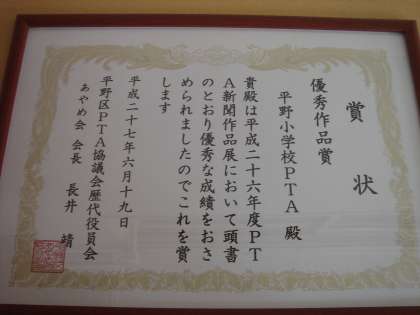 賞状
優秀作品賞
平野小学校PTA 殿
貴殿は平成二十六年度PT
A新聞作品展において頭書
のとおり優秀な成績をおさ
められましたのでこれを賞
します
平成二十七年六月十九日
平野区PTA協議会歴代役員会
あやめ会 会長 長井 靖